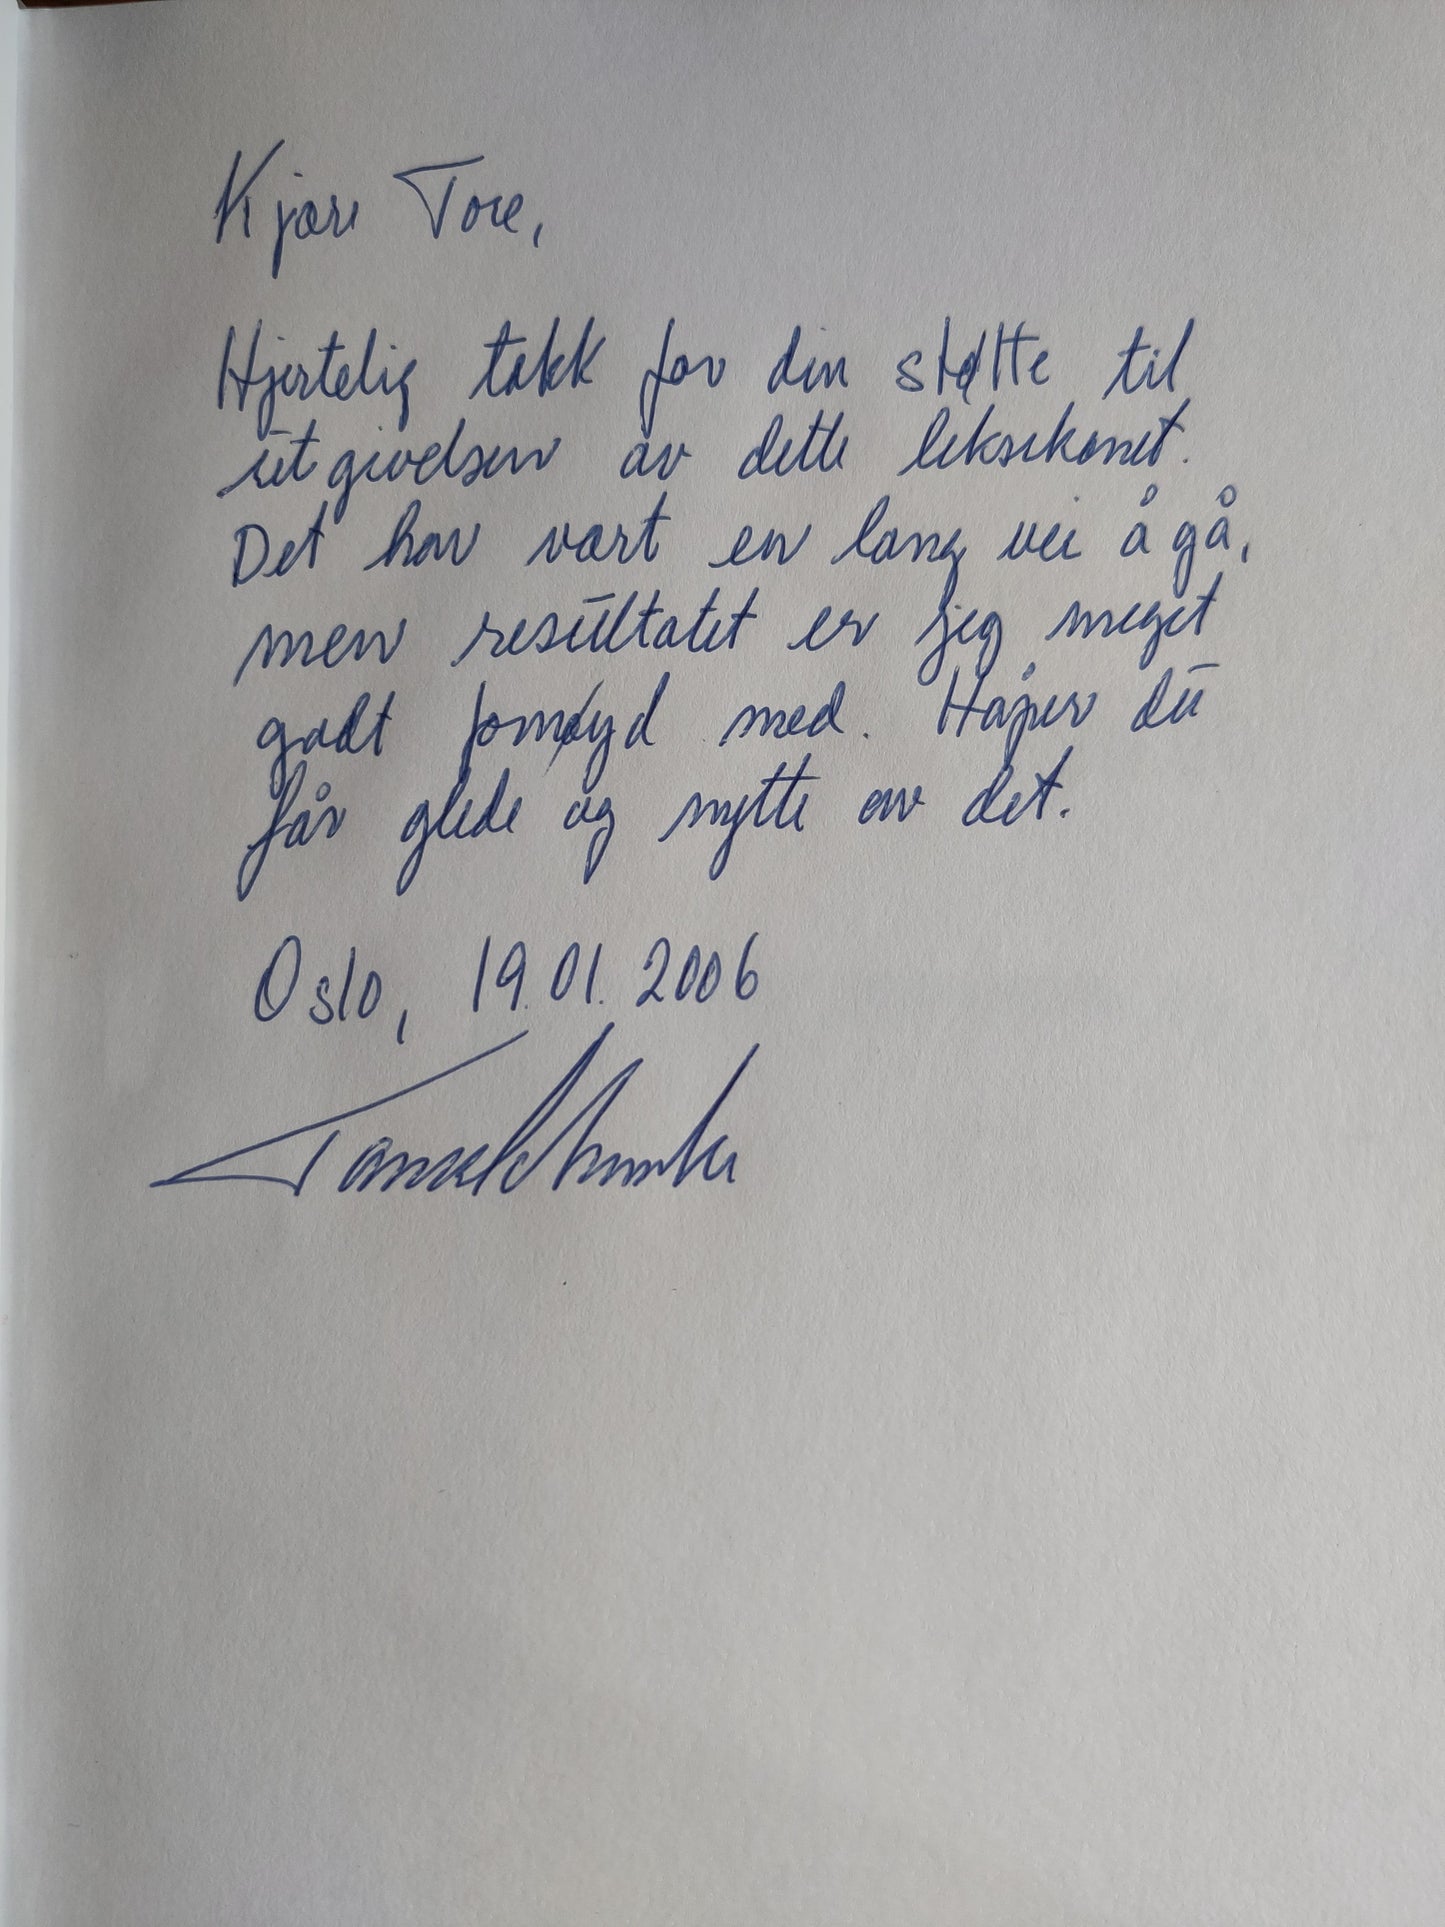 Kjære Tore,
Hjertelig takk for din støtte til
utgivelsen av dette leksikonet.
Det har vært en lang vei å gå,
men resultatet er jeg meget
godt fornøyd med. Håper du
får glede og nytte av det.
Oslo, 19.01.2006